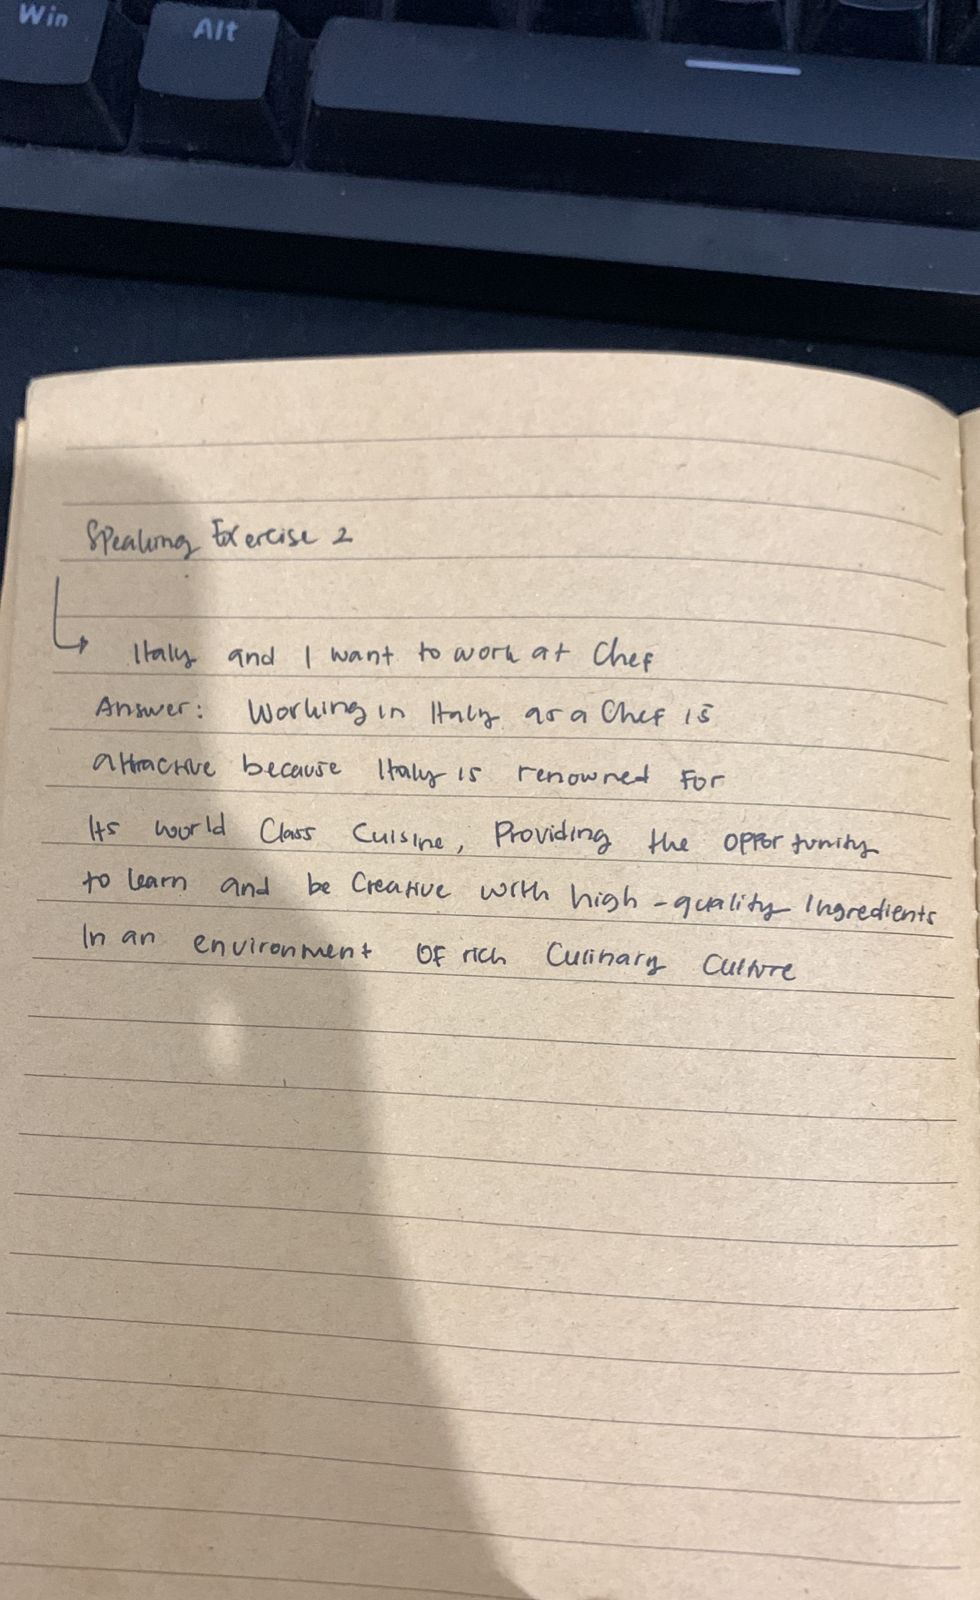 Win
Alt
Speaking Exercise 2
Italy and I want to work at Chef
Answer: Working in Italy as a Chef is
attractive because Italy is renowned for
Its world Class Cuisine, Providing the opportunity
to learn and be Creative with high-quality Ingredients
In an environment of rich Culinary Culture